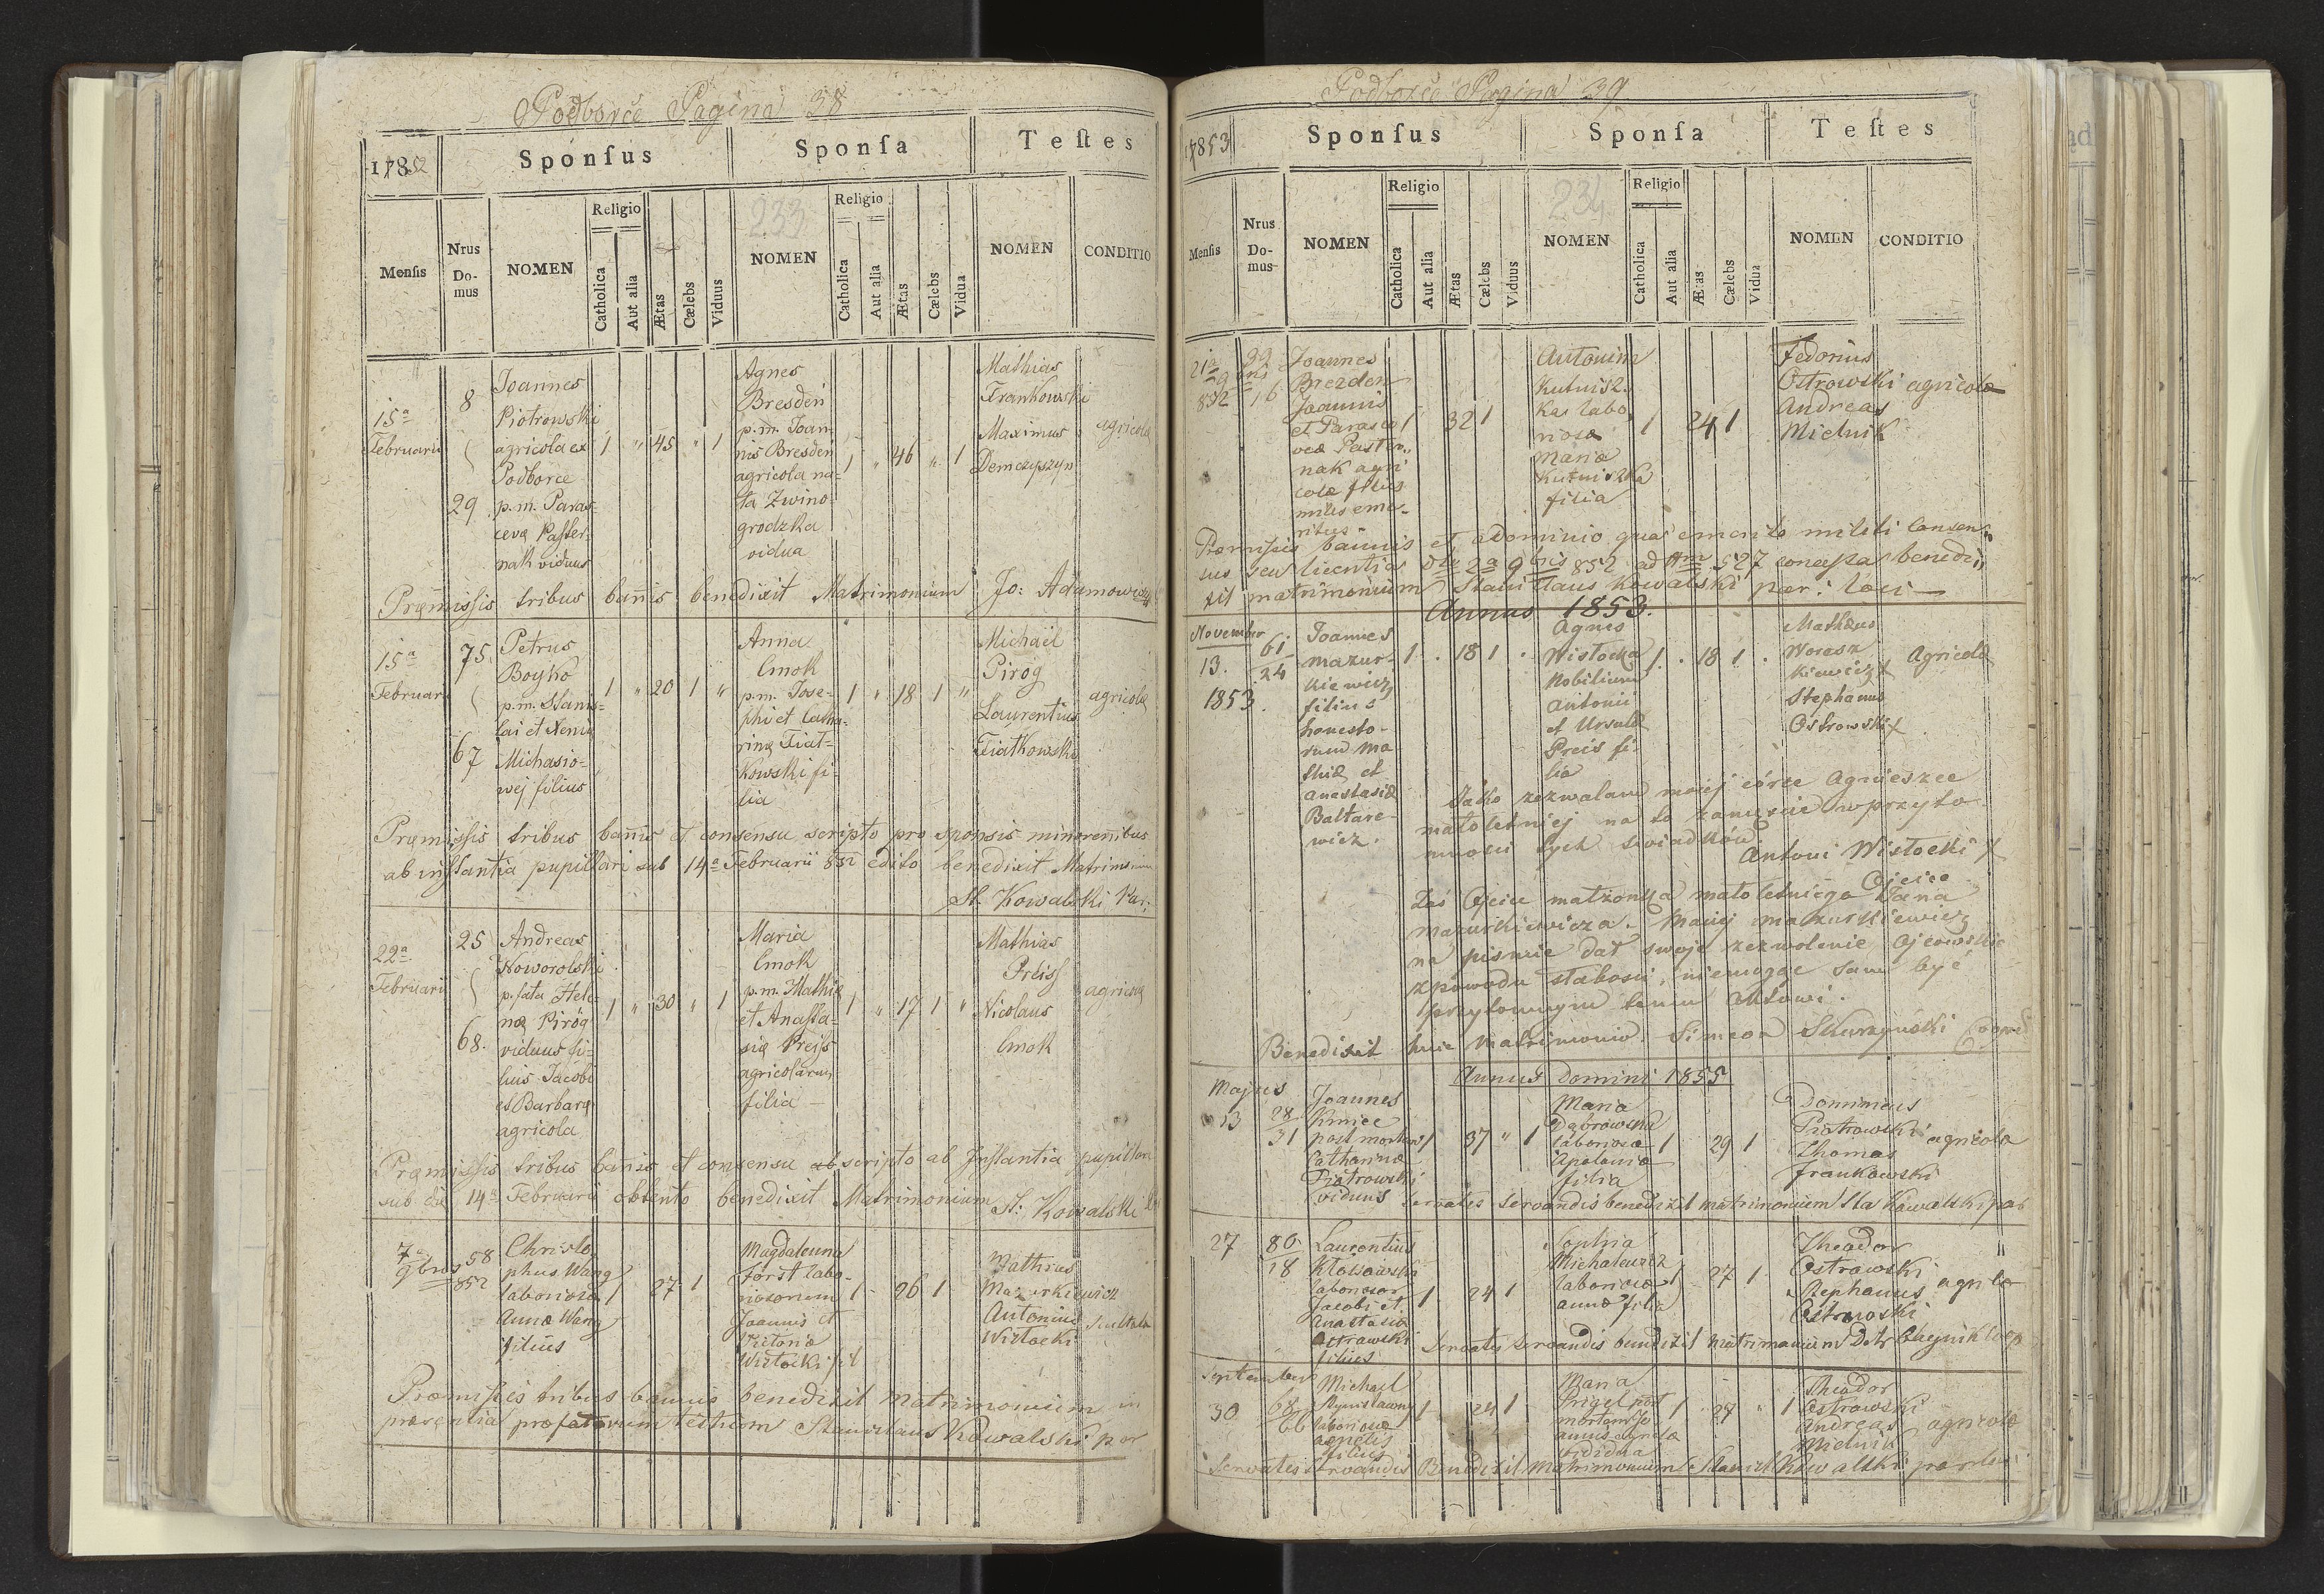 Podborce Pagina 38
1852
Sponſus
Sponſa
Teſtes
Menſis
Nrus Do-mus
NOMEN
Religio
Catholica
Aut alia
Ætas
Cælebs
Viduus
233
NOMEN
Religio
Catholica
Aut alia
Ætas
Cælebs
Vidua
NOMEN
CONDITIO
15ª
Februarii
8
29
Joannes
Piotrowski
agricola ex
Podborce
p.m. Paras-
ceva Paster-
nak viduus
1 " 45 " 1
Agnes
Bresden
p.m. Joan-
nis Bresden
agricola na-
ta Zwino-
grodzka
vidua
1 " 46 " 1
Mathias
Frankowski
Maximus
Demczyszyn
agricola
Pręmissis tribus bannis benedixit Matrimonium Jo: Adamowicz
15ª
Februarii
75
67
Petrus
Boyko
p.m. Stanis-
lai et Xenia
Michasio-
wej filius
1 " 20 1 "
Anna
Cmok
p.m. Jose-
phi et Catha-
rinę Fiat-
kowski fi-
lia
1 " 18 1 "
Michaël
Pirog
Laurentius
Fiatkowski
agricolę
Pręmissis tribus bannis et consensu scripto pro sponsis minorennibus
ab instantia pupillari sub 14ª Februarii 852 edito benedixit Matrimonium
St. Kowalski Par:
22ª
Februarii
25
68.
Andreas
Noworolski
p. fata Hele-
nę Pirog
viduus fi-
lius Jacobi
et Barbarę
agricola
1 " 30 " 1
Maria
Cmok
p.m. Mathię
et Anasta-
się Preiss
agricolarum
filia
1 " 17 1 "
Mathias
Preiss
Nicolaus
Cmok
agricolę
Pręmissis tribus bannis et consensu ab scripto ab Instantia pupillari
sub die 14ª Februarii obtento benedixit Matrimonium St: Kowalski
7ª
9bris
852
58
Christo-
phus Wang
laboriosa
Annæ Wang
filius
1 27 1
Magdalenna
Forst labo-
riosorum
Joannis et
Victoriæ
Wistocki fil
1 - 26 1
Mathias
Mazurkiewicz
Antonius
Wistocki
Præmissis tribus bannis benedixit matrimonium in
præsentia præfatorum testium Stanislaus Kowalski par
Podborce Pagina 39
1853
Sponſus
Sponſa
Teſtes
Menſis
Nrus Do-mus
NOMEN
Religio
Catholica
Aut alia
Ætas
Cælebs
Viduus
234
NOMEN
Religio
Catholica
Aut alia
Ætas
Cælebs
Vidua
NOMEN
CONDITIO
21ª
9bris
852
29
16
Joannes
Brezden
Joannis
et Parasce
veæ Paster-
nak agri
colæ filius
miles eme-
ritus
1 32 1
Antonina
Kutnisz-
kas labo
riosæ
Maria
Kutniszka
filia
1 24 1
Fedorius
Ostrowski
Andreas
Mielnik
agricolæ
Præmissis bannis et a dominio qua emerito militi consen-
sus seu licentia dto 2a 9bris 852 ad Nrm 527 concessa benedi-
xit matrimonium Stanislaus Kowalski par: loci
Annus 1853.
November
13.
1853.
61
24
Joannes
Mazur-
kiewicz
filius
honesto-
rum Ma
thiæ et
Anastasiæ
Baltare-
wicz.
1 . 18 1 .
Agnes
Wistocka
Nobilium
Antonii
et Ursulæ
Preis fi-
lia
1 . 18 1 .
Mathæus
Woresz
kiewicz X
Stephanus
Ostrowski X
Agricolæ
Jako zezwalam mojej córce Agnieszce
małoletniej na to zamęzcie w przyto
mności tych świadków
Antoni Wistocki X
Ojciec
Zaś Ojciec małżonka małoletniego Jana
Mazurkiewicza. Maciej Mazurkiewicz
na pismie dał swoje zezwolenie Ojcowskie
z powodu słabosci, niemogąc sam być
przytomnym temu Aktowi.
Benedixit huic Matrimonio. Simeon Skurzynski Coope
Annus Domini 1855
Majus
13
28
31
Joannes
Kmiec
post mortem
Catharinæ
Piotrowski
viduus
1 37 " 1
Maria
Dąbrowska
laboriosæ
Apoloniæ
filia
1 29 1
Dominicus
Piotrowski
Thomas
Frankowski
agricolæ
Servatis servandis benedixit matrimonium Sta Kowalski par
27
80
18
Laurentius
Kłosowski
laborioso
Jacobi et
Anastasia
Ostrowski
filius
1 24 1
Sophia
Michalewicz
laboriosæ
Annæ filia
1 27 1
Theodor
Ostrowski
Stephanus
Ostrowski
agricolæ
Servatis servandis benedixit matrimonium
September
30
68
66
Michael
laboriosæ
Agnetis
filius
1 24 1
Maria
Prigel post
mortem
vidua
1 27 " 1
Theodor
Ostrowski
Andreas
Mielnik
agricolæ
Servatis servandis Benedixit Matrimonium Stanisl Kowalski par loci